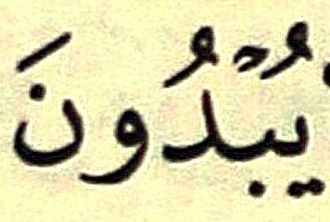 يُبْدُونَ